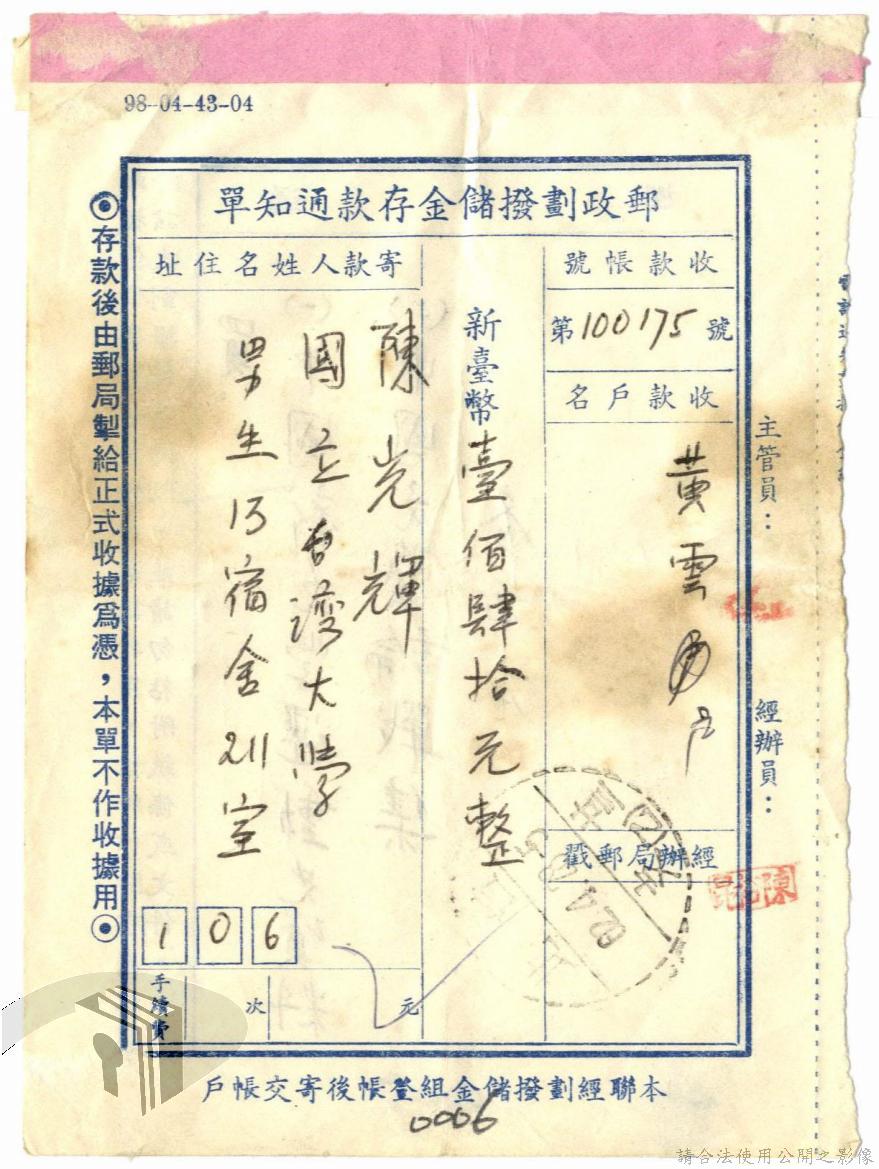 98-04-43-04
郵政劃撥儲金存款通知單
收款帳號
第100175號
收款戶名
黃雲
經辦局郵戳
新臺幣壹佰肆拾元整
寄款人姓名住址
陳光輝
國立台灣大學
男生15宿舍211室
106
手續費
次
元
主管員：
經辦員：
陳
◉存款後由郵局掣給正式收據為憑，本單不作收據用◉
本聯經劃撥儲金組登帳後寄交帳戶
0006
請合法使用公開之影像